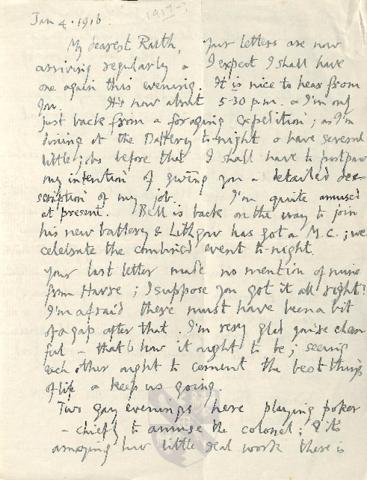 Jan 4. 1916.
1917?
My dearest Ruth, Your letters are now
arriving regularly & I expect I shall have
one again this evening. It is nice to hear from
you. It's now about 5.30 p.m. & I'm only
just back from a foraging expedition; as I'm
dining at the Battery to-night & have several
little jobs before that I shall have to postpone
my intention of giving you a detailed des-
cription of my job. I'm quite amused
at present. Bell is back on the way to join
his new battery & Lithgow has got a M.C.; we
celebrate the combined event to-night.
Your last letter made no mention of mine
from Havre; I suppose you got it all right?
I'm afraid there must have been a bit
of a gap after that. I'm very glad you're cheer
ful – that's how it ought to be; seeing
each other ought to cement the best things
of life & keep us going.
Two gay evenings here playing poker
– chiefly to amuse the colonel; & it's
amazing how little real work there is